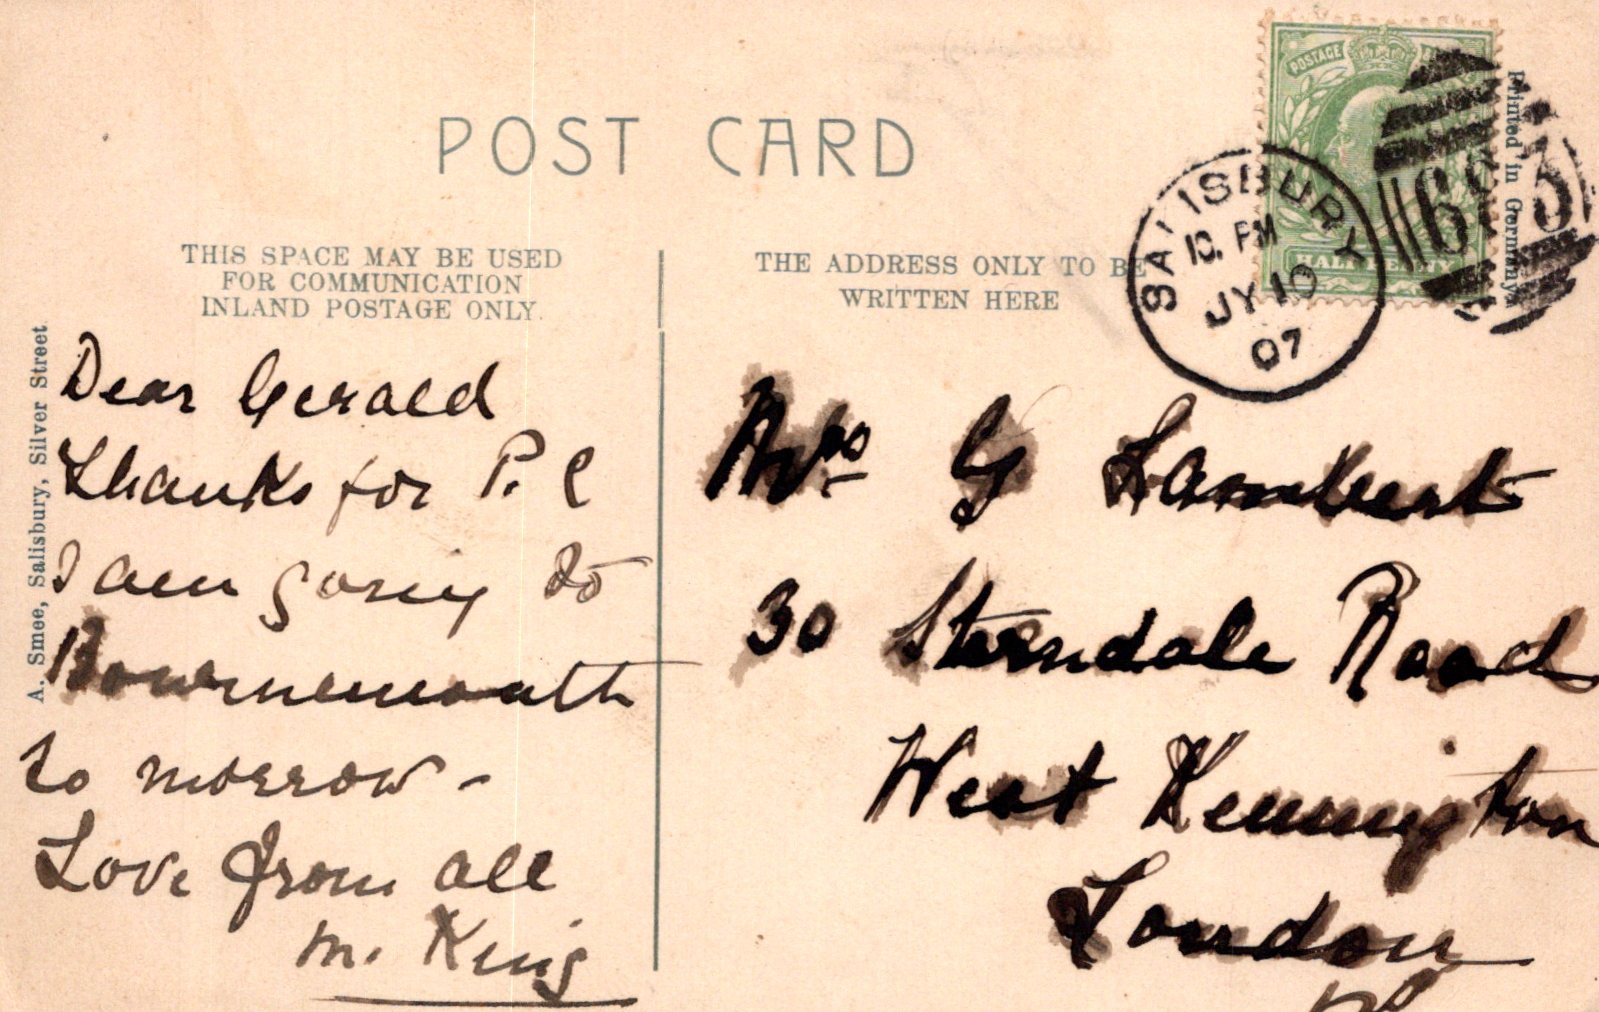 POST CARD
THIS SPACE MAY BE USED
FOR COMMUNICATION
INLAND POSTAGE ONLY.
THE ADDRESS ONLY TO BE
WRITTEN HERE
A. Smee, Salisbury, Silver Street
Printed in Germany
POSTAGE
HALF PENNY
SALISBURY
10. PM
JY 10
07
Dear Gerald
Thanks for P. C
I am going to
Bournemouth
to morrow -
Love from all
M. King
Mrs G Lambert
30 Sterndale Road
West Kennington
London